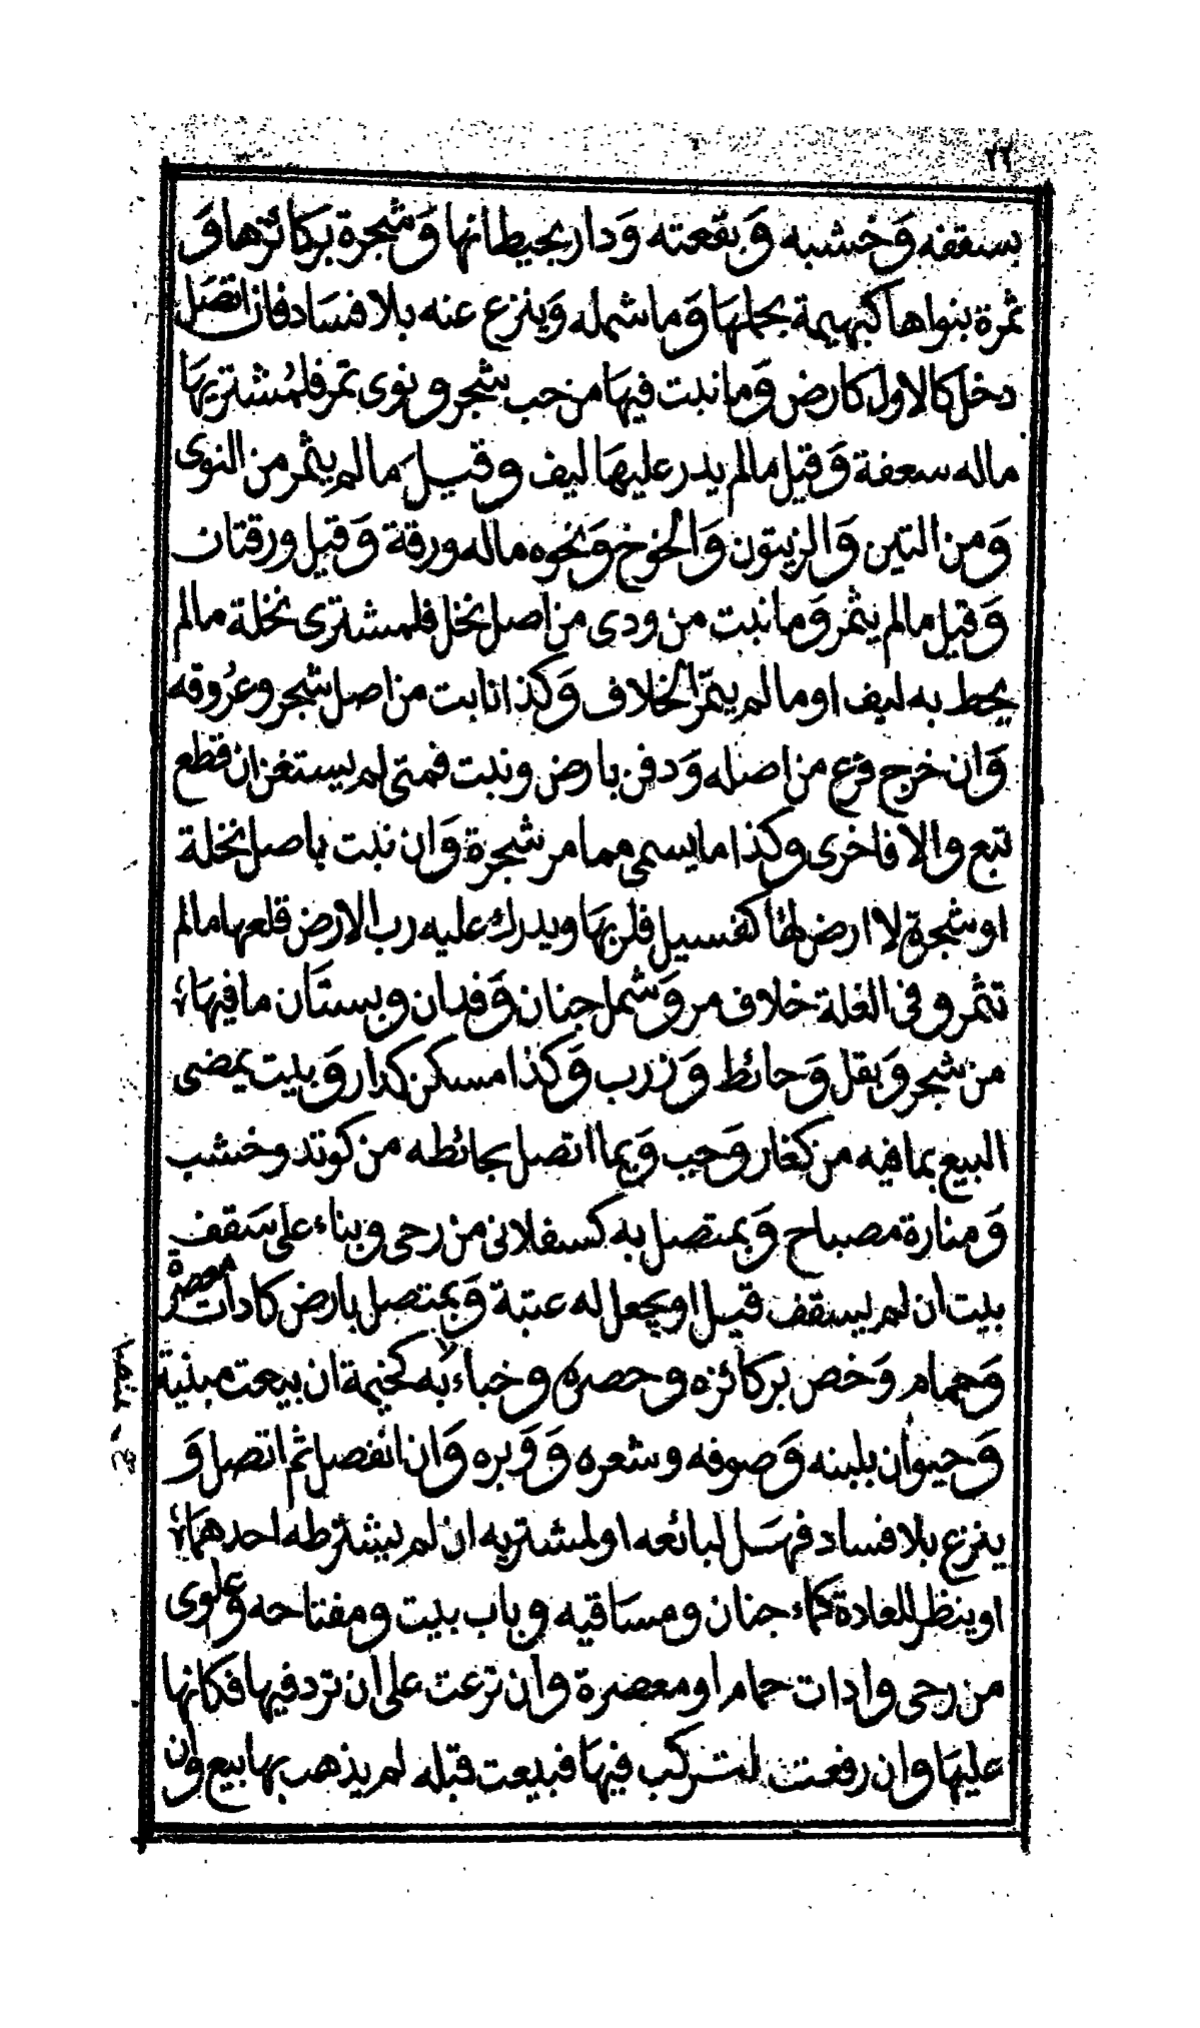 ٢٢
بسقفه وَخشبه وَبقعته وَدار بحيطانها وَشجرة بركائزها وَ
ثمرة بنواها كبهيمة بحملهَا وَما شمله وَينزع عنه بلا فسَاد فان اتصَل
دخل كالاول كارض وَما نبت فيهَا من حب شجر و نوى تمر فلمُشتريهَا
ماله سعفة وَقيل مالم يدر عليهَا ليف و قيل مَا لم يثمر من النوى
وَمن التين وَالزيتون وَالخوخ وَنحوه ماله ورقة وَقيل ورقتان
وَقيل مالم يثمر وَما نبت من ودى من اصل نخل فلمشترى نخلة مالم
يحط به ليف او ما لم يثمر الخلاف وَكذا نابت من اصل شجر وعُروقه
وَان خرج فرع من اصله وَدفن بارض ونبت فمتى لم يستغن ان قطع
تبع والا فاخرى وكذا ما يسمى مما مر شجرة وَان نبت باصل نخلة
او شجرة لا ارض لهَا كفسيل فلربهَا ويدرك عليه رب الارض قلعها مالم
تثمر و فى الغلة خلاف مر وَشمل جنان وَفدان وبستَان ما فيهَا
من شجر وَبقل وَحائط وَزرب وَكذا مسكن كدار وَبيت يمضى
البيع بما فيه من كغار وَجب وَبما اتصل بحائطه من كوتد وخشب
وَمنارة مصباح وَبمتصل به كسفلانى من رحى وبناء على سَقف
بيت ان لم يسقف قيل او يجعل له عتبة وَبمتصل بارض كادات معصرة
وَحمام وَخص بركائزه وحصره وخباء به لا كخيمة ان بيعت مبنية
وَحيوان بلبنه وَصوفه وشعره وَوَبره وَان انفصل ثم اتصل وَ
ينزع بلا فساد فهَل لبائعه او لمشتريه ان لم يشترطه احدهمَا
او ينظر للعادة كماء جنان ومسَاقيه وباب بيت ومفتاحه وعلوى
من رحى وادات حمام او معصرة وان نزعت على ان ترد فيها فكانها
عليهَا وان رفعت لتركب فيهَا فبيعت قبله لم يذهب بها بيع وان